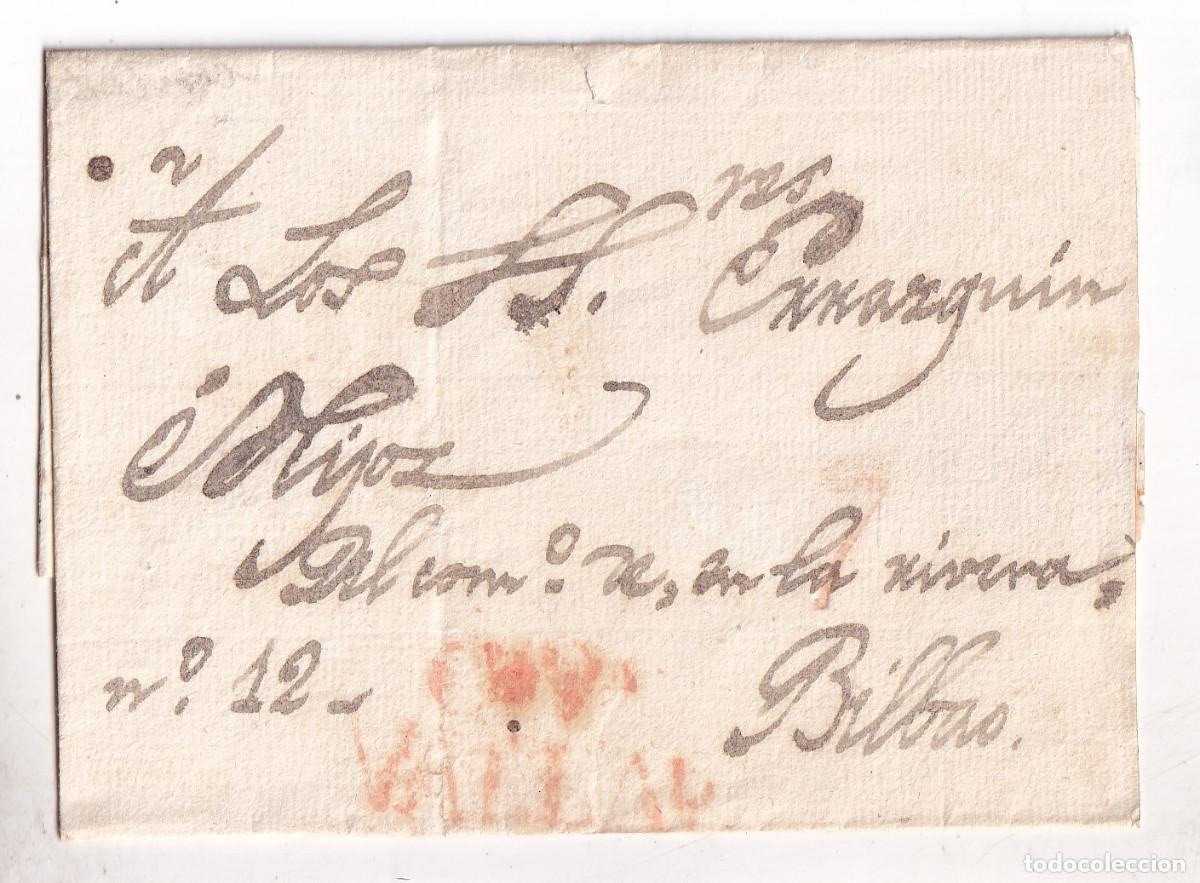 A Los SS.res Errazquin
é Hijos
Del com.o de, en la rivera,
n.o 12
Bilbao.
7
todocoleccion